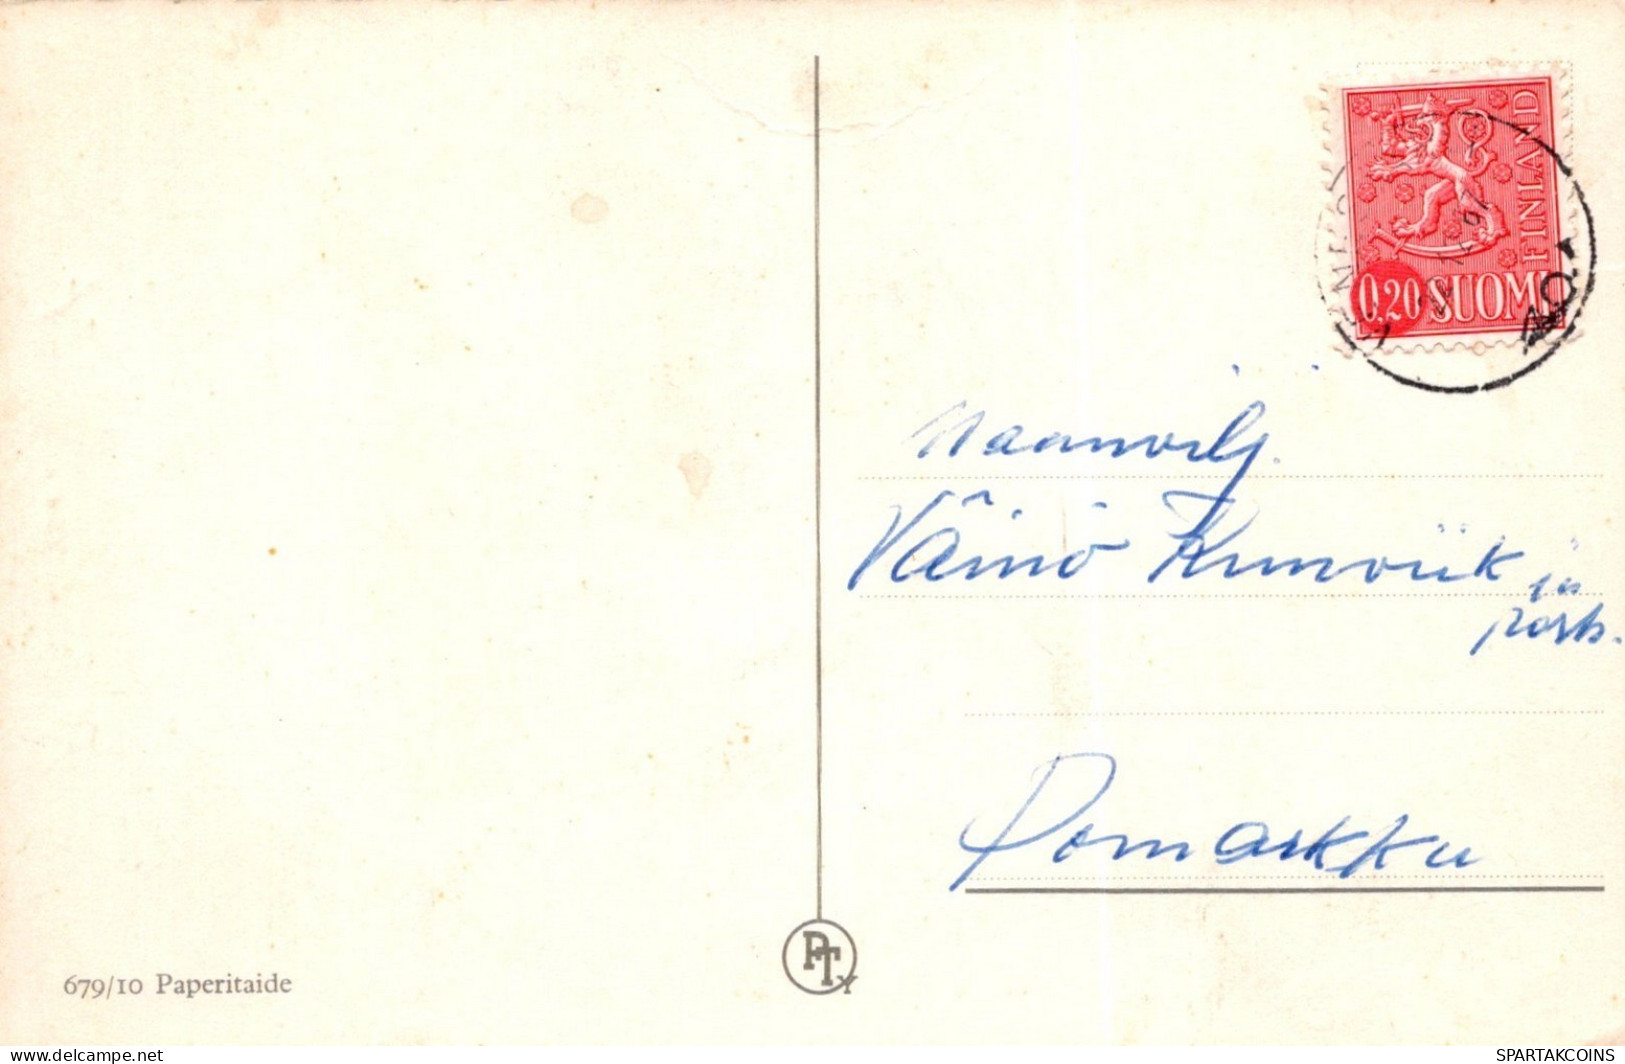 FINLAND
0.20 SUOMI
Maanvilj.
Väinö Kunnviik ja
Pomarkku
PTY
679/10 Paperitaide
www.delcampe.net
SPARTAKCOINS